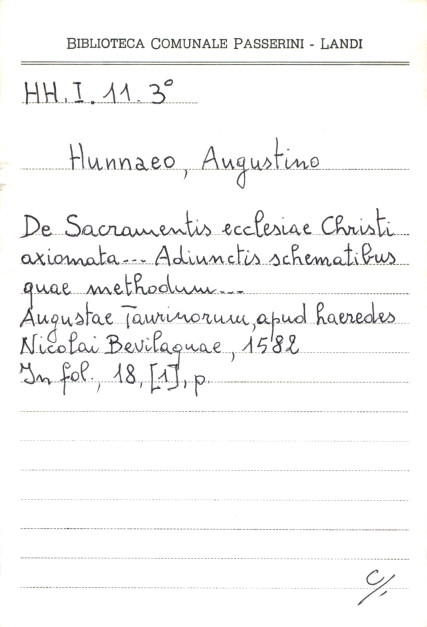 BIBLIOTECA COMUNALE PASSERINI - LANDI
HH. I. 11. 3°
Hunnaeo, Augustino
De Sacramentis ecclesiae Christi
axiomata... Adiunctis schematibus
quae methodum...
Augustae Taurinorum, apud haeredes
Nicolai Bevilaquae, 1582
In fol., 18, [1], p.